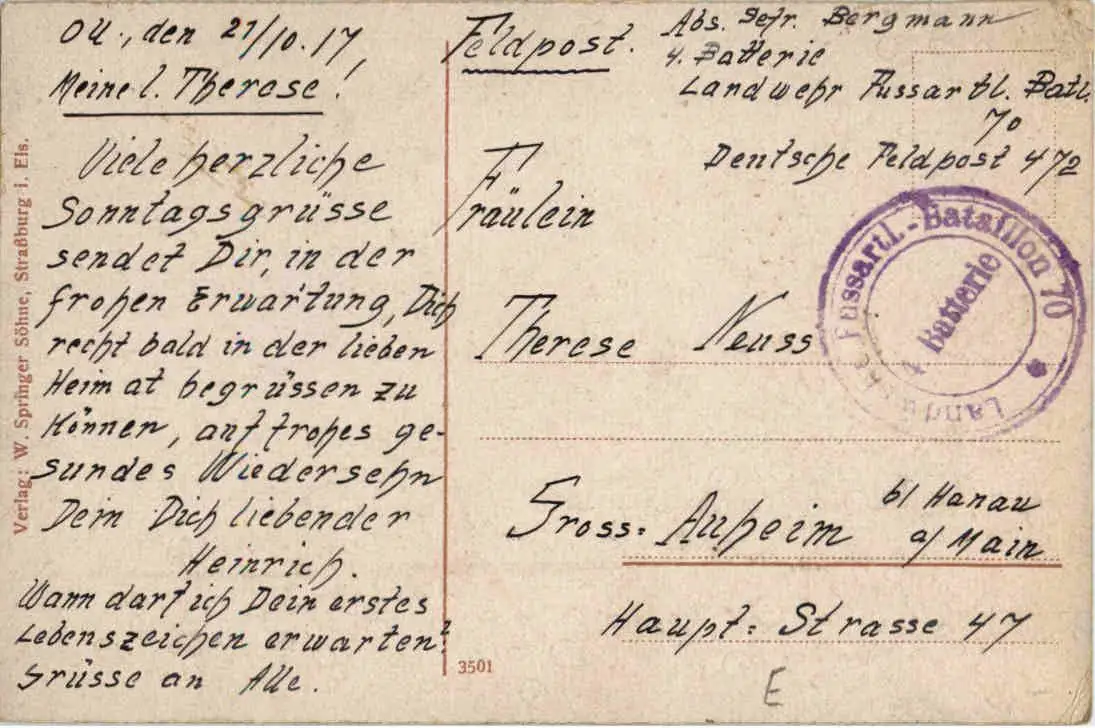 O.U., den 21/10.17,
Meine l. Therese!
Viele herzliche
Sonntagsgrüsse
sendet Dir, in der
frohen Erwartung, Dich
recht bald in der lieben
Heimat begrüssen zu
können, auf frohes ge-
sundes Wiedersehn
Dein Dich liebender
Heinrich.
Wann darf ich Dein erstes
Lebenszeichen erwarten?
Grüsse an Alle.
Verlag: W. Springer Söhne, Straßburg i. Els.
3501
Feldpost.
Abs. Gefr. Bergmann
4. Batterie
Landwehr Fussartl. Batl.
70
Deutsche Feldpost 472
Fräulein
Therese Neuss
Gross= Auheim b/ Hanau
a/ Main
Haupt= Strasse 47
E
Fussartl.-Bataillon 70
Batterie